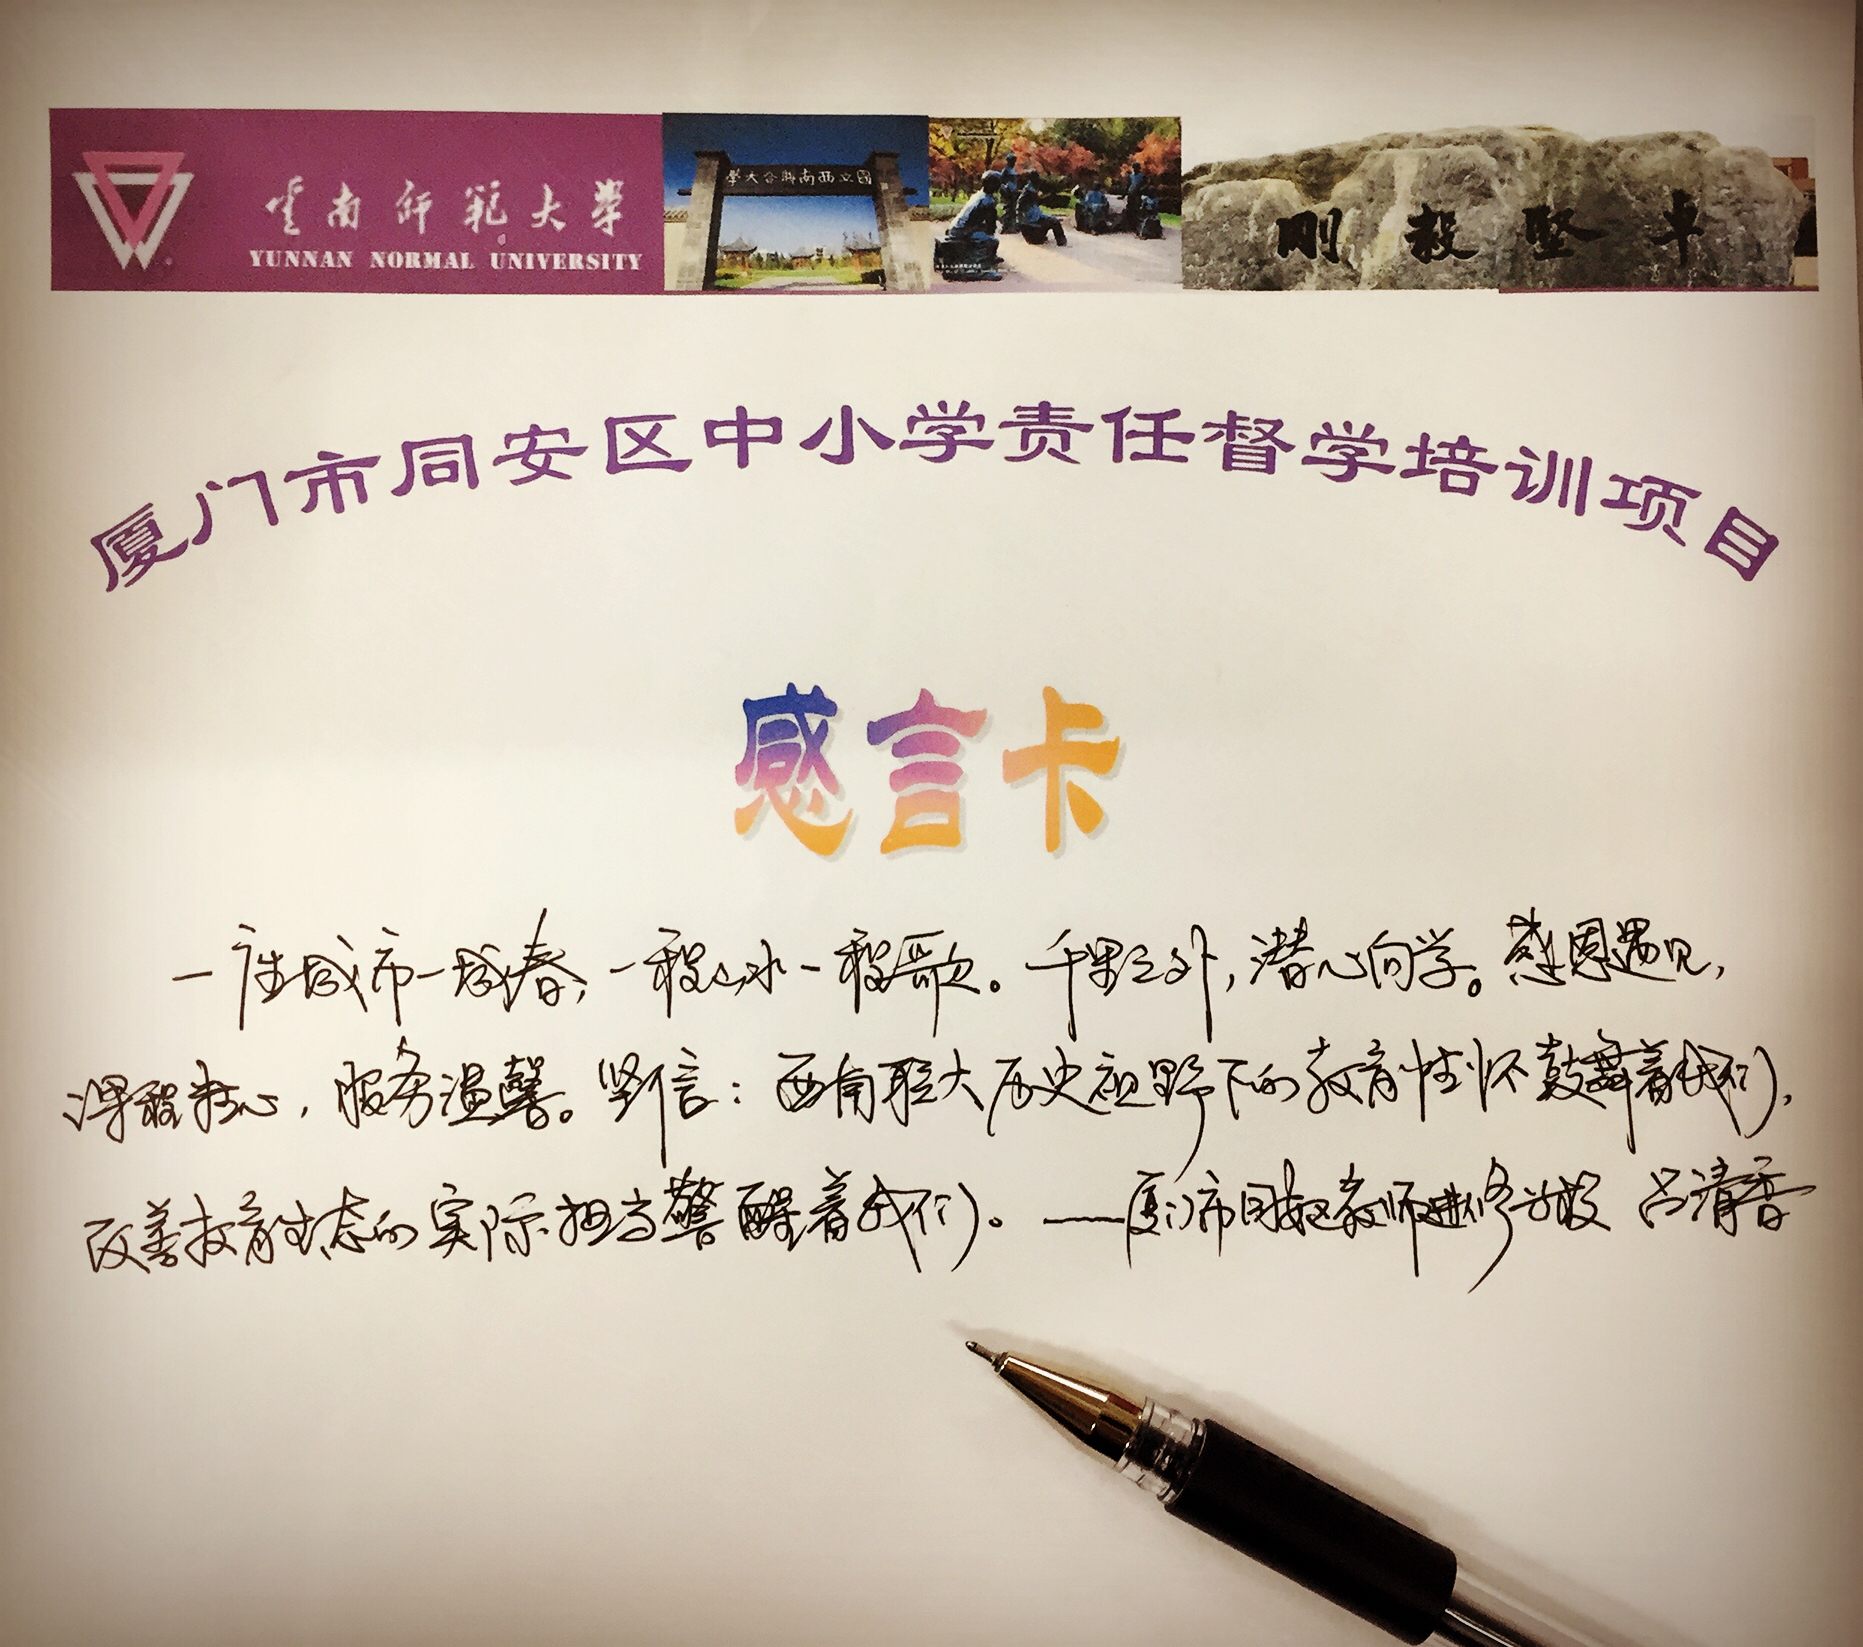 雲南師範大學
YUNNAN NORMAL UNIVERSITY
國立西南聯合大學
剛毅堅卓
厦门市同安区中小学责任督学培训项目
感言卡
一座城市一城春,一程山水一程歌。千里之外,潜心向学。感恩遇见,
课程精心,服务温馨。坚信:西南联大历史视野下的教育性怀鼓舞着我们,
改善教育生态的实际担当警醒着我们。——厦门市同安区教师进修学校 吕清香